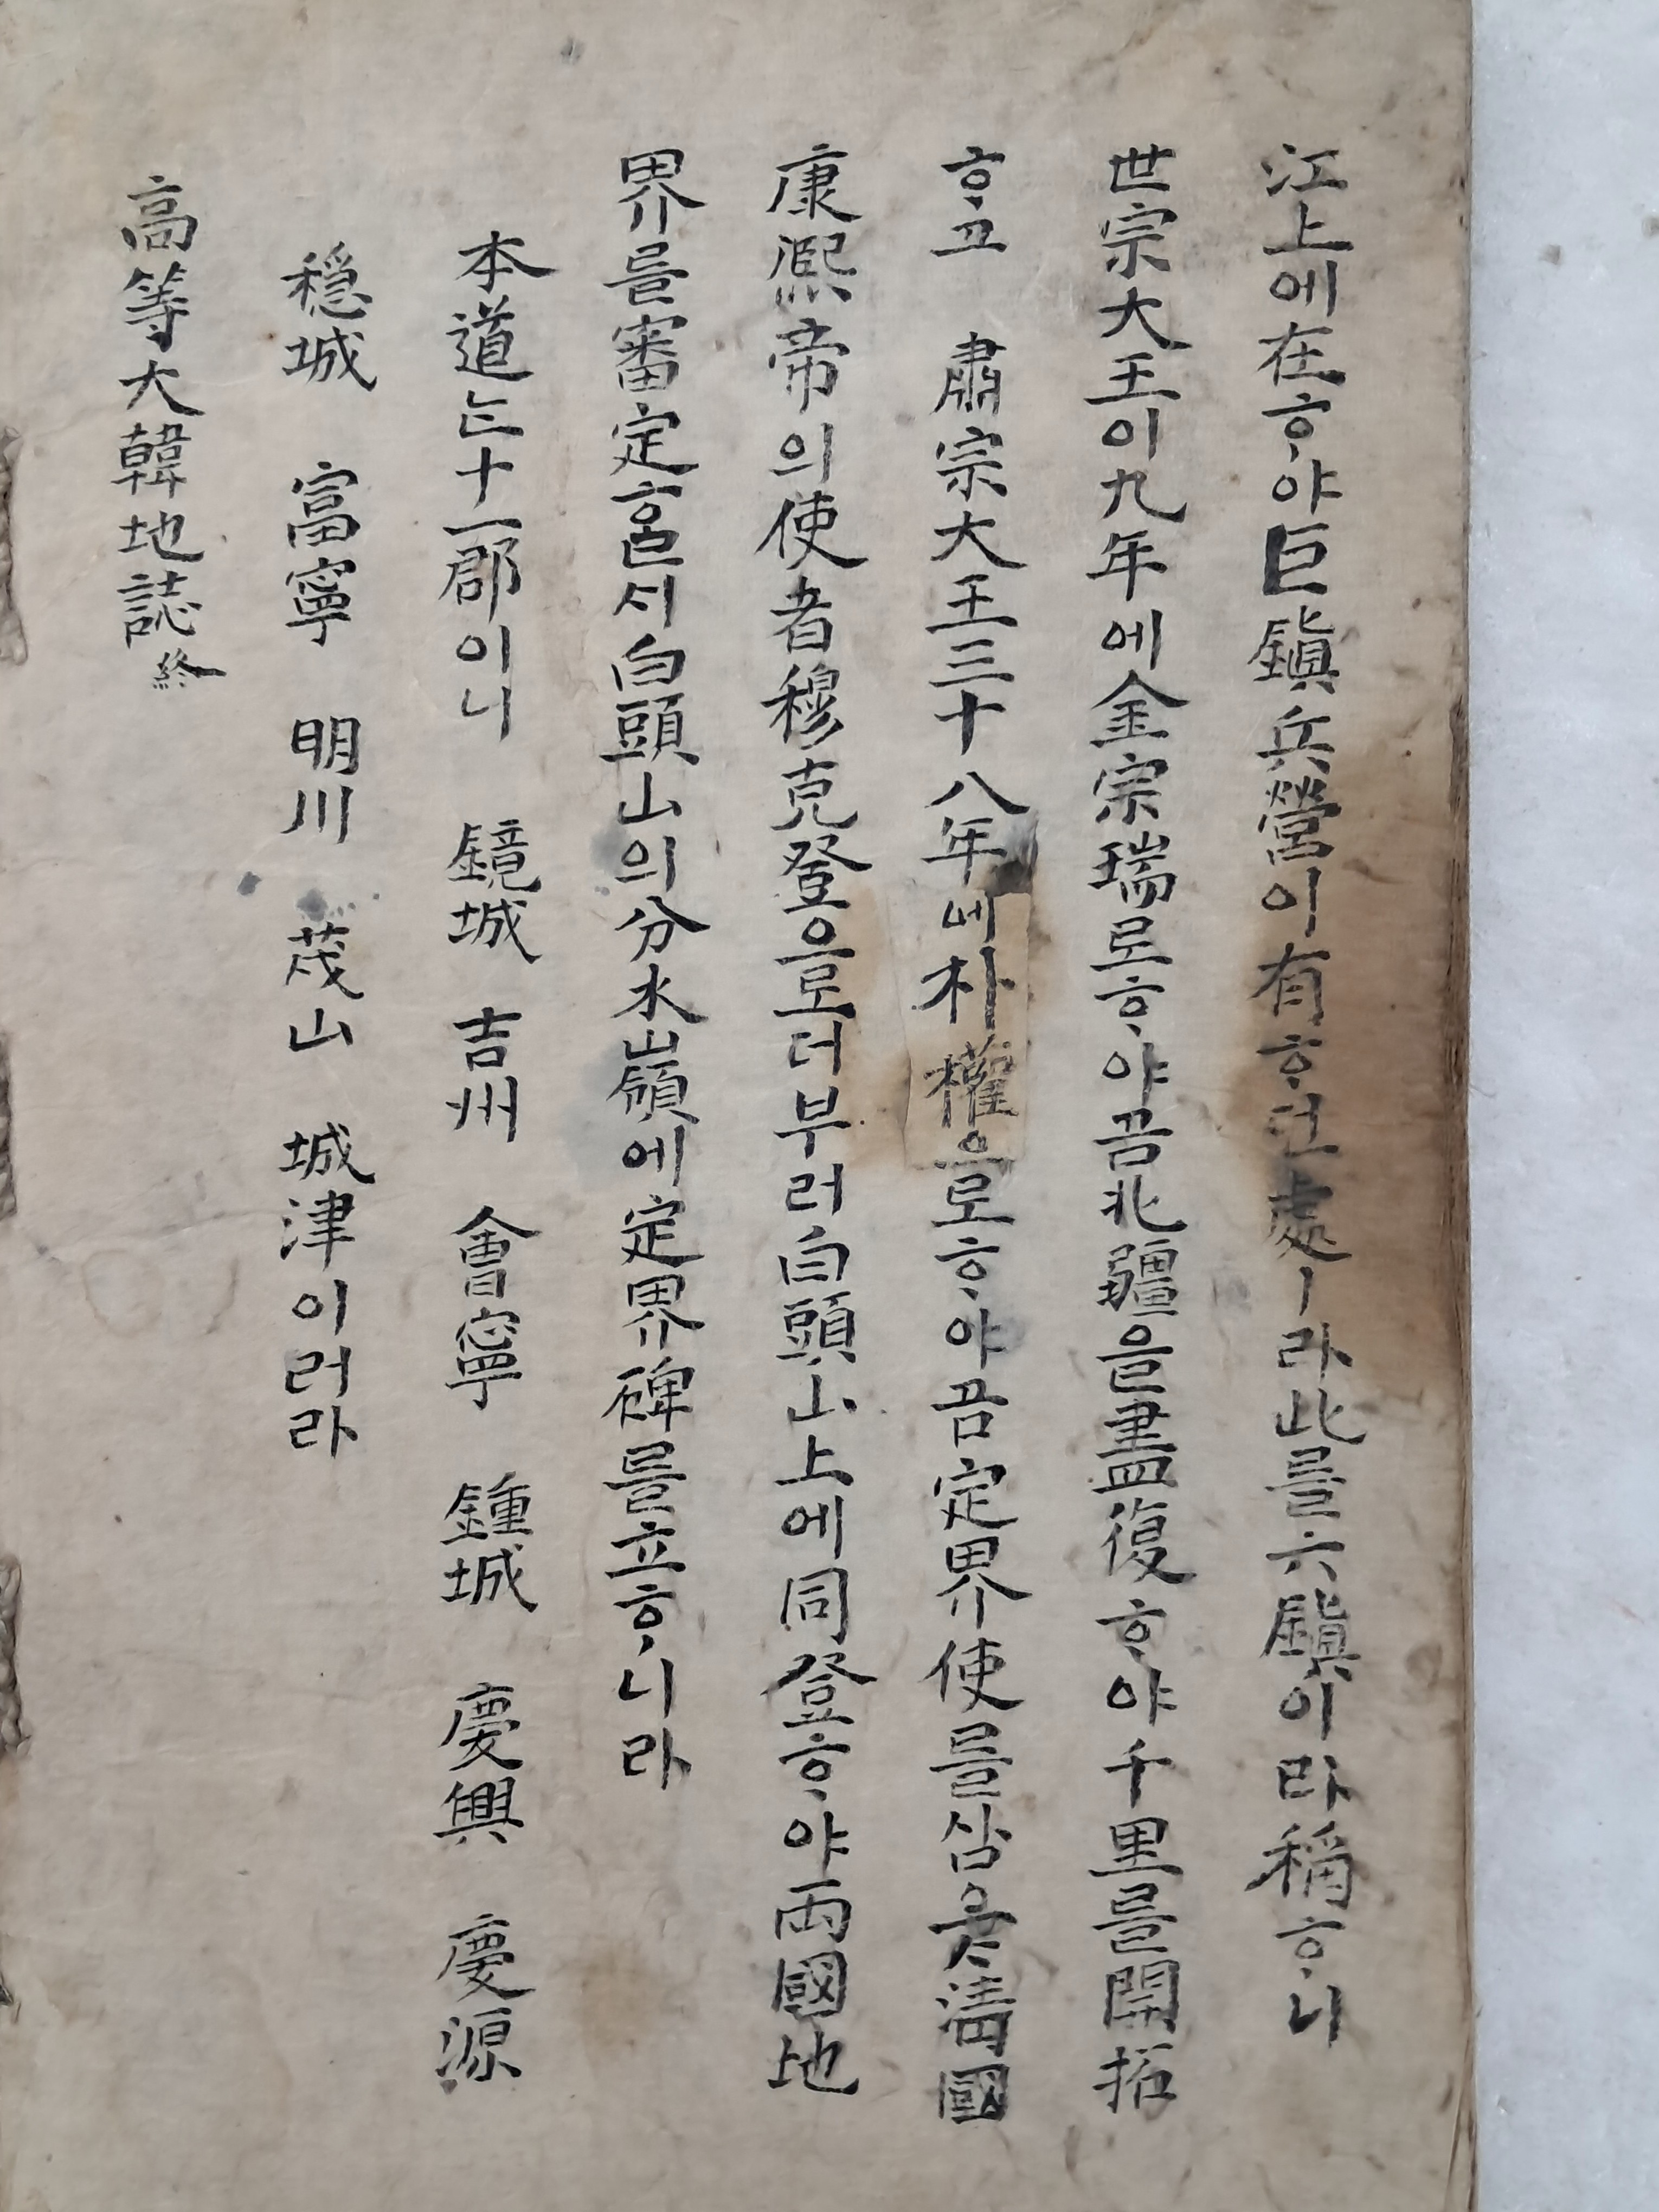 江上에在ᄒᆞ야巨鎭兵營이有ᄒᆞ던處ㅣ라此를六鎭이라稱ᄒᆞ니
世宗大王이九年에金宗瑞로ᄒᆞ야곰北疆을盡復ᄒᆞ야千里를開拓
ᄒᆞ고 肅宗大王三十八年에朴權으로ᄒᆞ야곰定界使를삼음淸國
康熙帝의使者穆克登으로더부러白頭山上에同登ᄒᆞ야兩國地
界를審定ᄒᆞᆯ시白頭山의分水嶺에定界碑를立ᄒᆞ니라
本道는十一郡이니 鏡城 吉州 會寧 鍾城 慶興 慶源
穩城 富寧 明川 茂山 城津이러라
高等大韓地誌終